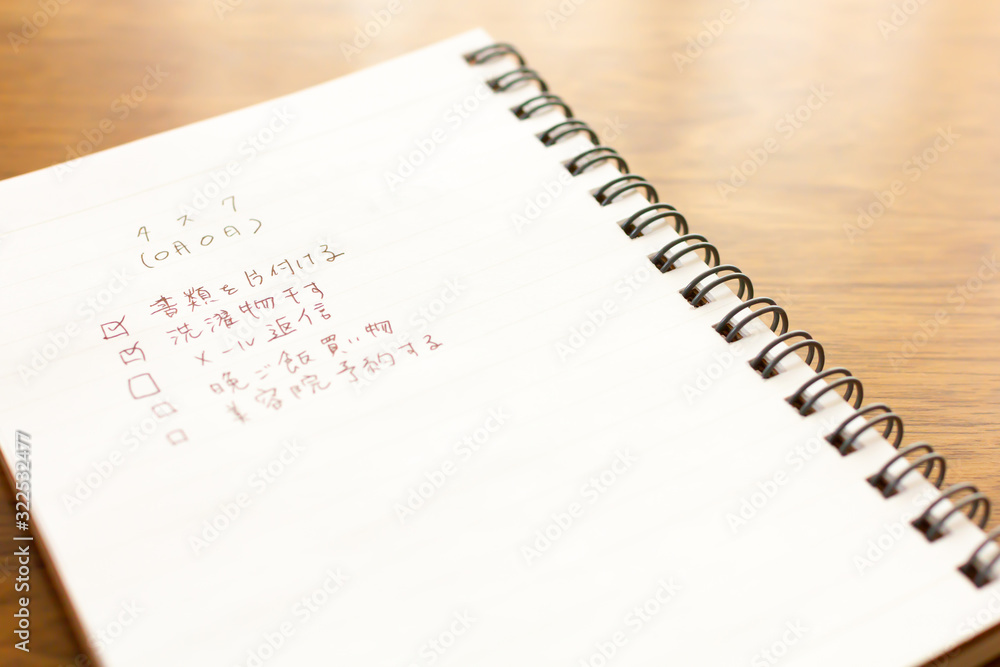 タスク
(〇月〇日)
☑ 書類を片付ける
☑ 洗濯物干す
☐ メール返信
☐ 晩ご飯買い物
☐ 美容院予約する
Adobe Stock | #322532477